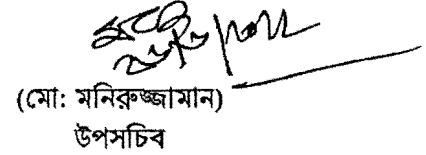 (মো: মনিরুজ্জামান)
উপসচিব